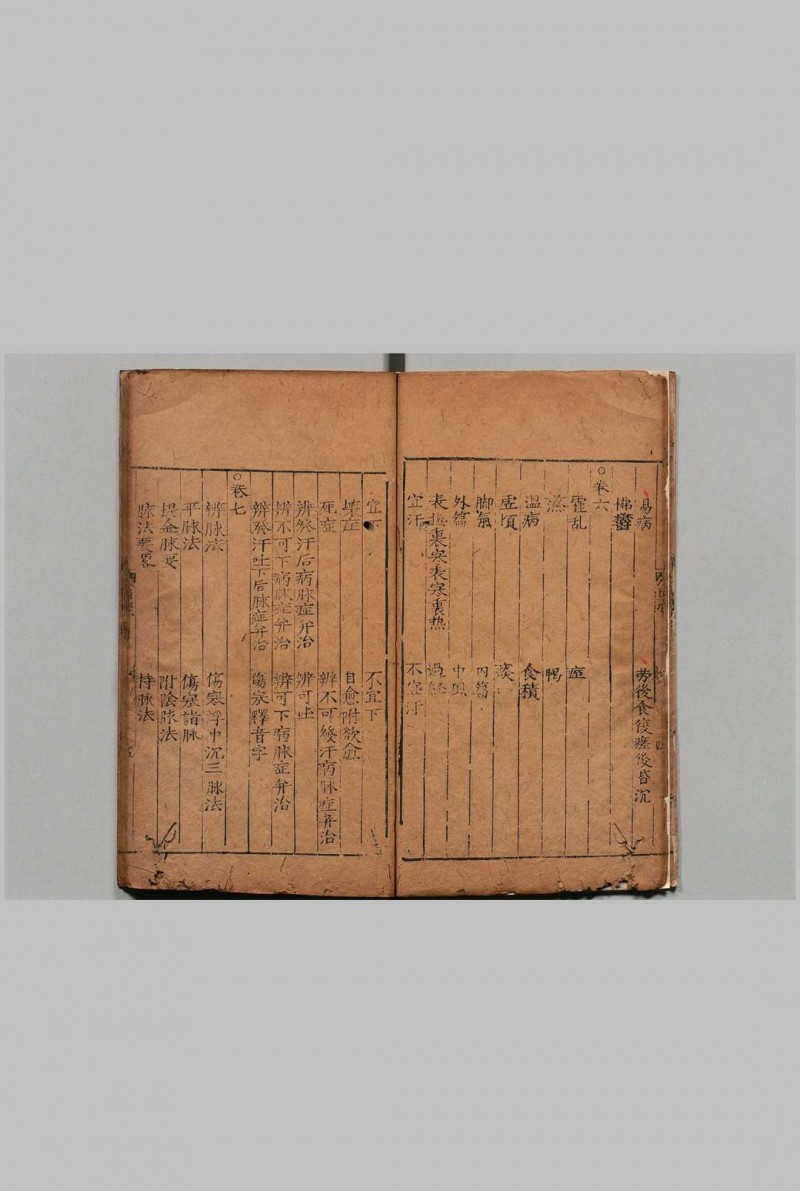 易病 勞後食復瘥後昏沉
怫鬱
○卷六
霍乱 痙
濕 暍
温病 食積
虚煩 痰
脚氣 内篇
外篇 中風
表热裏寒表寒裏热 過経
宜汗 不宜汗
宜下 不宜下
壊症 自愈附欲愈
死症 辨不可發汗病脉症弁治
辨發汗后病脉症弁治 辨可吐
辨不可下病脉症弁治 辨可下病脉症弁治
辨發汗吐下后脉症弁治 傷寒釋音字
○卷七
辨脉法 傷寒浮中沉三脉法
平脉法 傷寒諸脉
提金脉要 附陰脉法
脉法要畧 持脉法